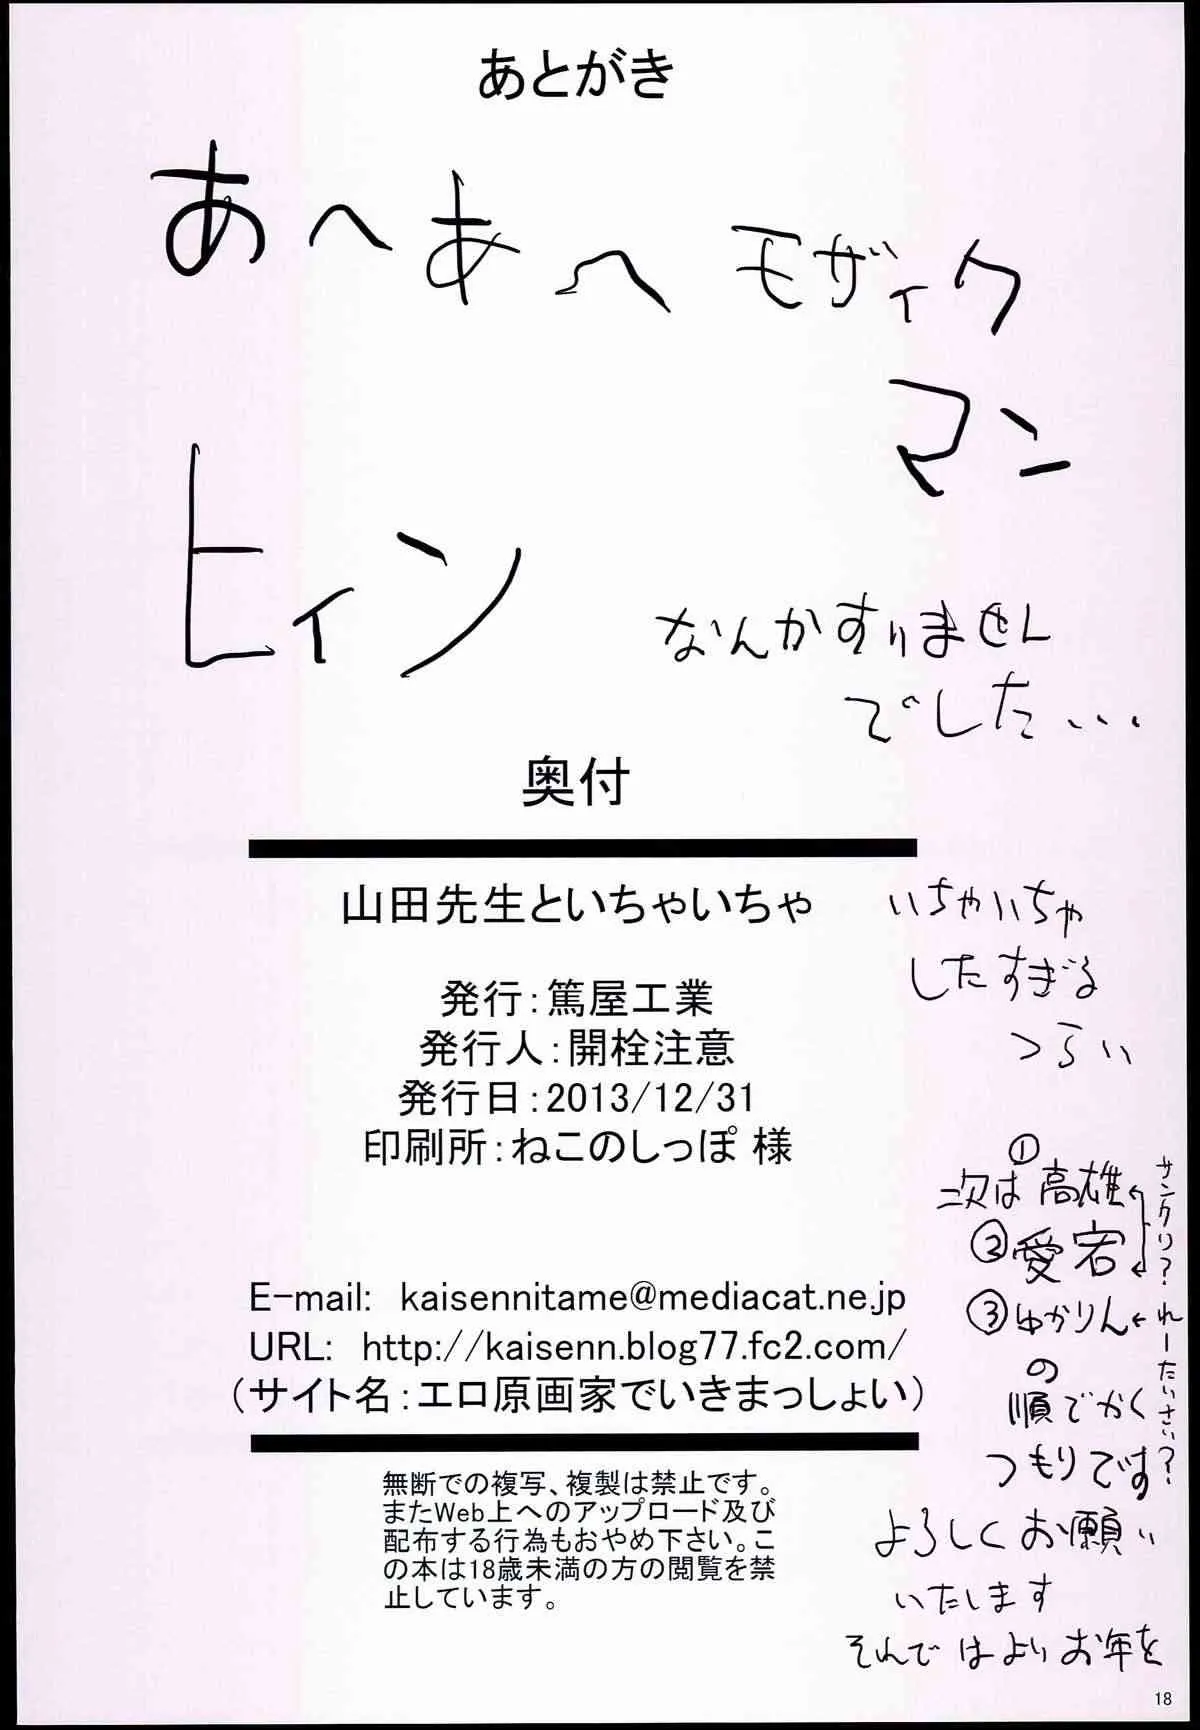 あとがき
あへあへ モザイク
マン
ヒィン
なんかすりません
でした...
奥付
山田先生といちゃいちゃ
いちゃいちゃ
したすぎる
つらい
発行：篤屋工業
発行人：開栓注意
発行日：2013/12/31
印刷所：ねこのしっぽ 様
①
次は高雄
②愛宕
③ゆかりん
の
順でかく
つもりです
サンクリ？
れーたいさい？
よろしくお願い
いたします
それではよいお年を
E-mail: kaisennitame@mediacat.ne.jp
URL: http://kaisenn.blog77.fc2.com/
（サイト名：エロ原画家でいきまっしょい）
無断での複写、複製は禁止です。
またWeb上へのアップロード及び
配布する行為もおやめ下さい。こ
の本は18歳未満の方の閲覧を禁
止しています。
18